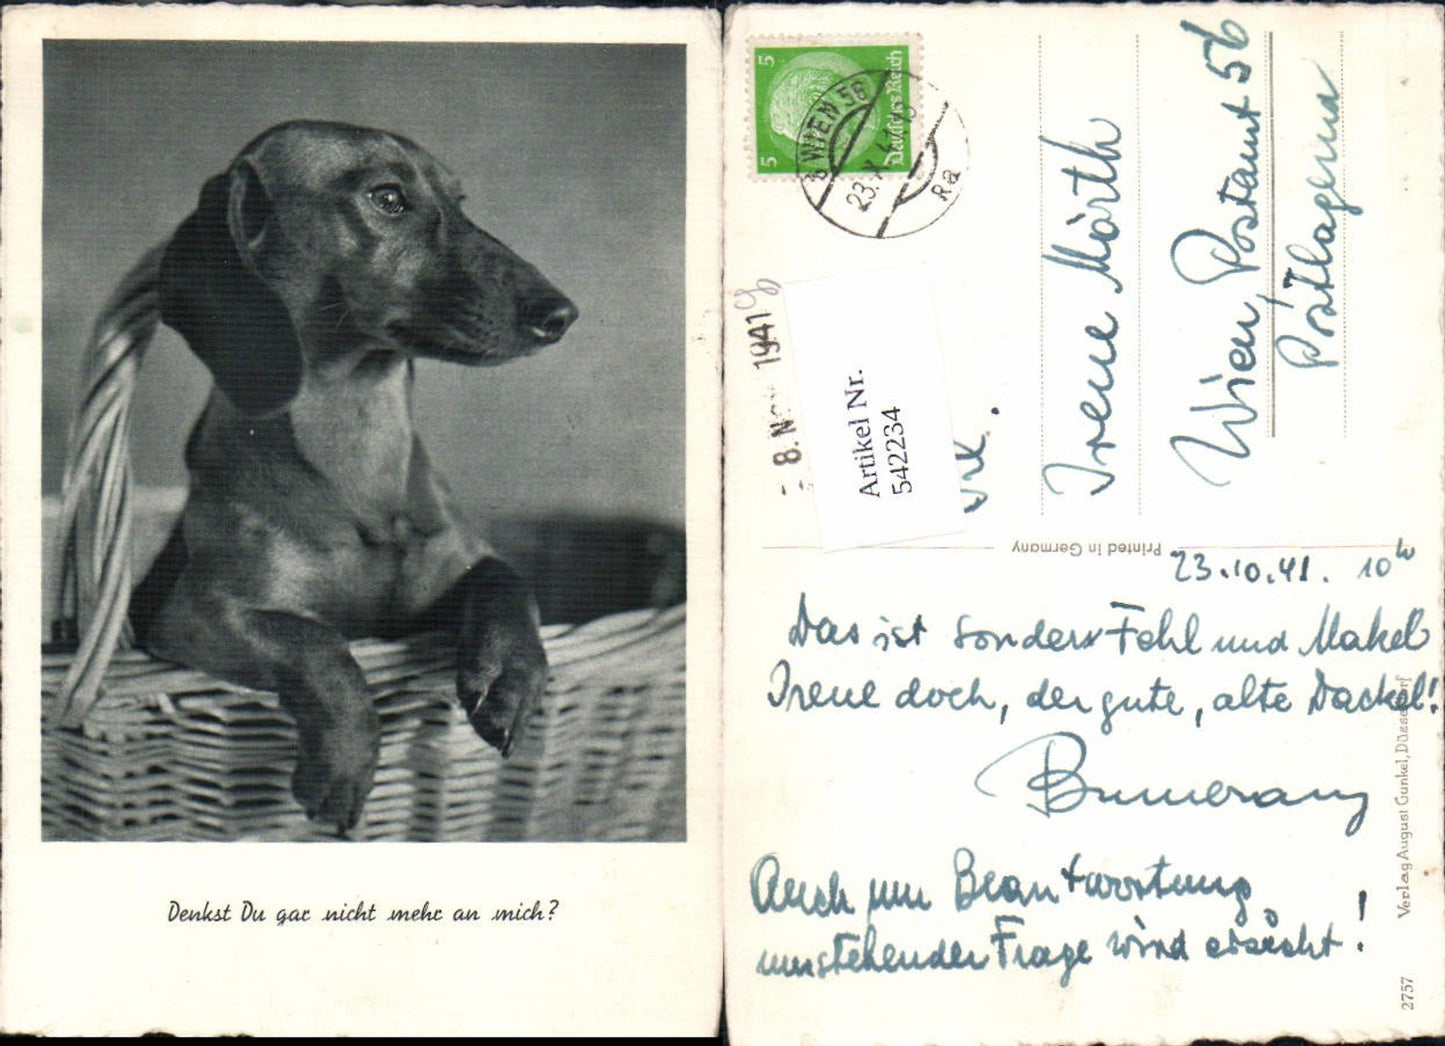 Denkst Du gar nicht mehr an mich?
5
5
Deutsches Reich
8 WIEN 56
23.X.41
Ra
8. N 1941
Artikel Nr.
542234
Irene Mörth
Wien, Postamt 56
Postlagernd
Printed in Germany
23.10.41. 10h
Das ist sonder Fehl und Makel
Irene doch, der gute, alte Dackel!
Bumerang
Auch um Beantwortung
umstehender Frage wird ersucht!
Verlag August Gunkel, Düsseldorf
2757